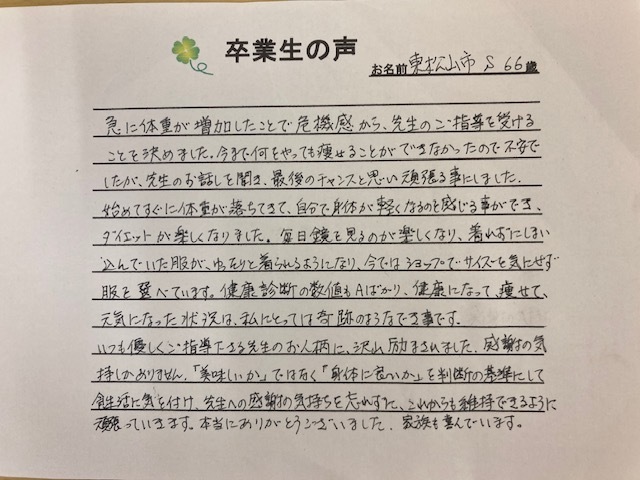 卒業生の声
お名前 東松山市 S 66歳
急に体重が増加したことで危機感から、先生のご指導を受ける
ことを決めました。今まで何をやっても痩せることができなかったので不安で
したが、先生のお話しを聞き、最後のチャンスと思い頑張る事にしました。
始めてすぐに体重が落ちてきて、自分で身体が軽くなるのを感じる事ができ、
ダイエットが楽しくなりました。毎日鏡を見るのが楽しくなり、着れずにしまい
込んでいた服が、ゆったりと着られるようになり、今ではショップでサイズを気にせず
服を選べています。健康診断の数値もAばかり、健康になって、痩せて、
元気になった状況は、私にとっては奇跡のようなでき事です。
いつも優しくご指導下さる先生のお人柄に、沢山励まされました。感謝の気
持しかありません。「美味しいか」ではなく「身体に良いか」を判断の基準にして
食生活に気を付け、先生への感謝の気持ちを忘れずに、これからも維持できるように
頑張っていきます。本当にありがとうございました。家族も喜んでいます。